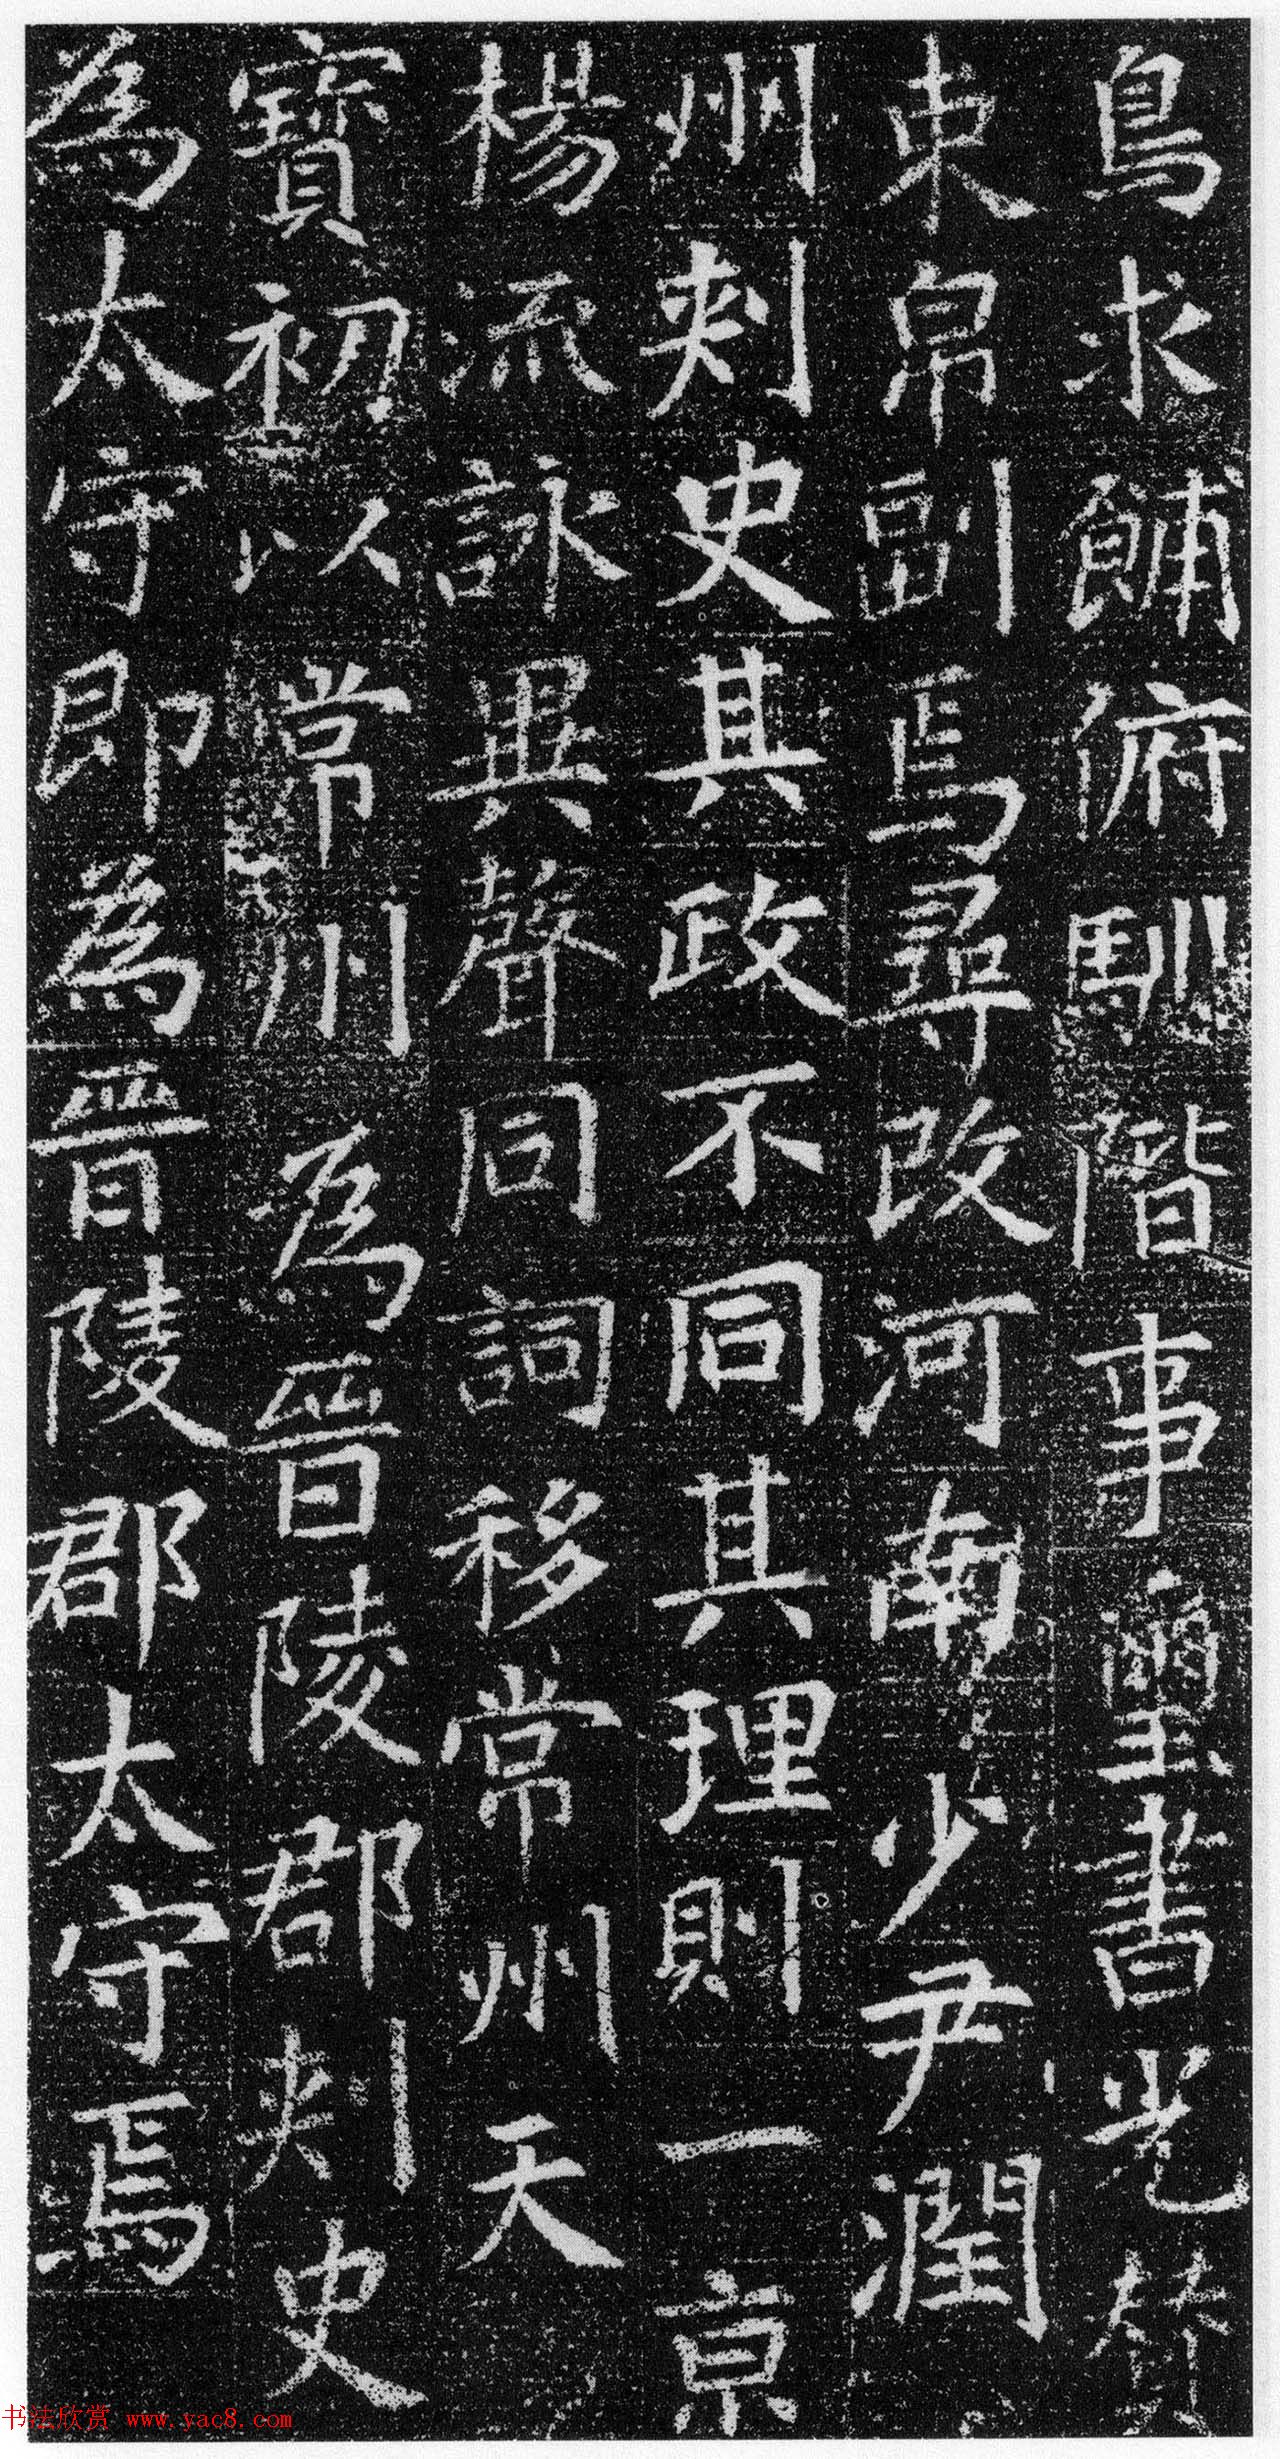 鳥求餔俯馴階事璽書光贊
束帛副焉尋改河南少尹潤
州刺史其政不同其理則一京
楊流詠異聲同詞移常州天
寶初以常州為晉陵郡刺史
為太守即為晉陵郡太守焉
书法欣赏 www.yac8.com